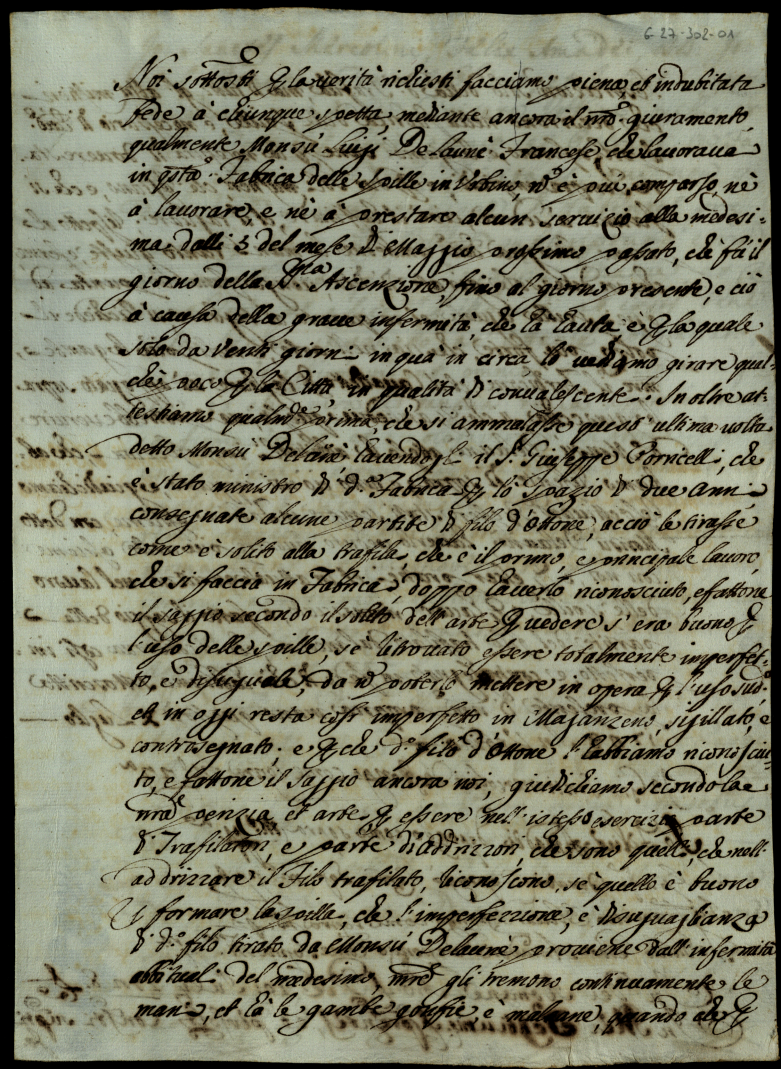 6-27-302-01
Noi sottos.ti p la verità richiesti facciamo piena, et indubitata
fede à chiunque spetta mediante ancora il nro giuramento,
qualmente Monsù Luigi Delaunè Francese, che lavorava
in qsta Fabrica delle spille in Urbino, nō è più comparso, nè
à lavorare, e nè à prestare alcun servizio alla medesi-
ma dalli 5 del mese di Maggio prossimo passato, che fù il
giorno della SS.ma Ascenzione, fino al giorno presente, e ciò
à causa della grave infermità, che hà hauta, e p la quale
solo da venti giorni in quà in circa lò vediamo girare qual-
chè poco p la Città in qualità di convalescente. Inoltre at-
testiamo qualm.te prima, che si ammalasse quest' ultima volta
detto Monsù Delaunè havendogli il S.r Giuseppe Cornicelli, che
è stato ministro di d.a Fabrica p lo spazio di due anni
consegnate alcune partite di filo d'Ottone, acciò le tirasse
come è solito alla trafila, che è il primo, e principale lavoro,
che si faccia in Fabrica, doppo haverlo riconosciuto, e fattone
il saggio secondo il solito dell' arte p vedere s' era buono p
l'uso delle spille, sè ritrovato essere totalmente imperfet-
to, e disuguale, da nō poterlo mettere in opera p l'uso sud.o
et in oggi resta così imperfetto in Maganzeno, sigillato, e
contrasegnato. e p che d.o filo d'Ottone l'habbiamo riconosciu-
to, e fattone il saggio ancora noi, giudichiamo secondo la
nra perizia, et arte p essere nell' istesso esercizio parte
di Trafilatori, e parte d'Addrizzori, che sono quelli, che nell'
addrizzare il Filo trafilato, riconoscono, sè quello è buono
p formare la spilla, che l'imperfezzione, e disuguaglianza
di d.o filo tirato da Monsù Delaunè proviene dall' infermità
abbituali del medesimo, mre gli tremono continuamente le
mani, et hà le gambe gonfie, e malsane, quando che p